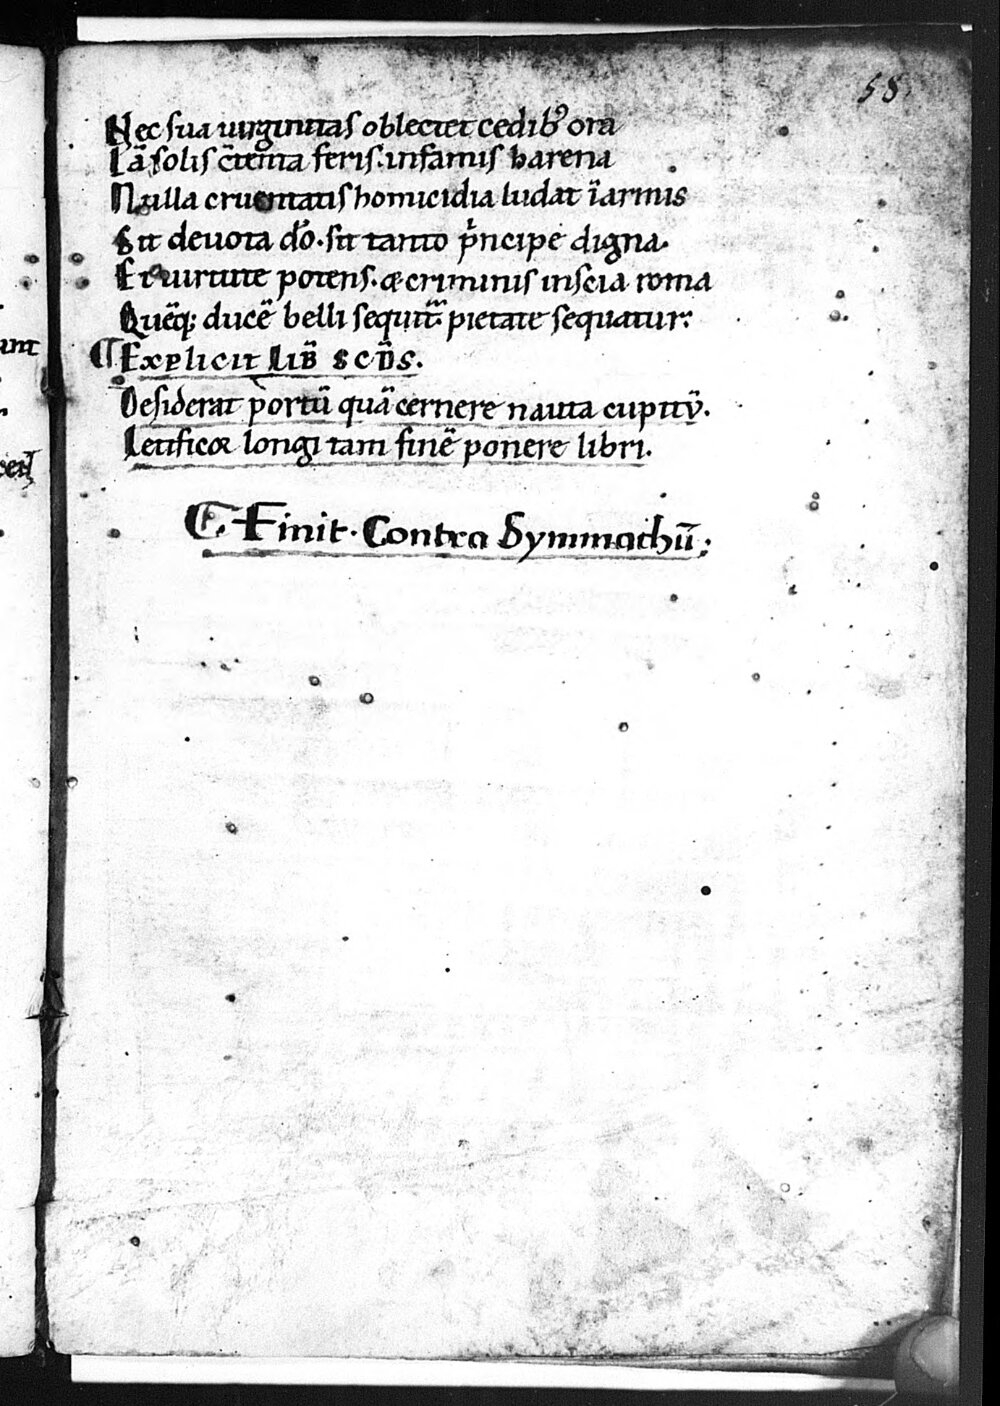 58
Nec sua uirginitas oblectet cedibꝰ ora
Iā solis c̄tenta feris. infamis harena
Nulla cruentatis homicidia ludat ī armis
Sit deuota dō. sit tanto p̄ncipe digna.
Et uirtute potens. & criminis inscia roma
Quēq; ducē belli sequit᷑. pietate sequatur.
¶ Explicit Lib̄ Sc̄ds.
Desiderat portū quā cernere nauta cupitū.
Letificor longi tam finē ponere libri.
¶ Finit. Contra Symmachū;